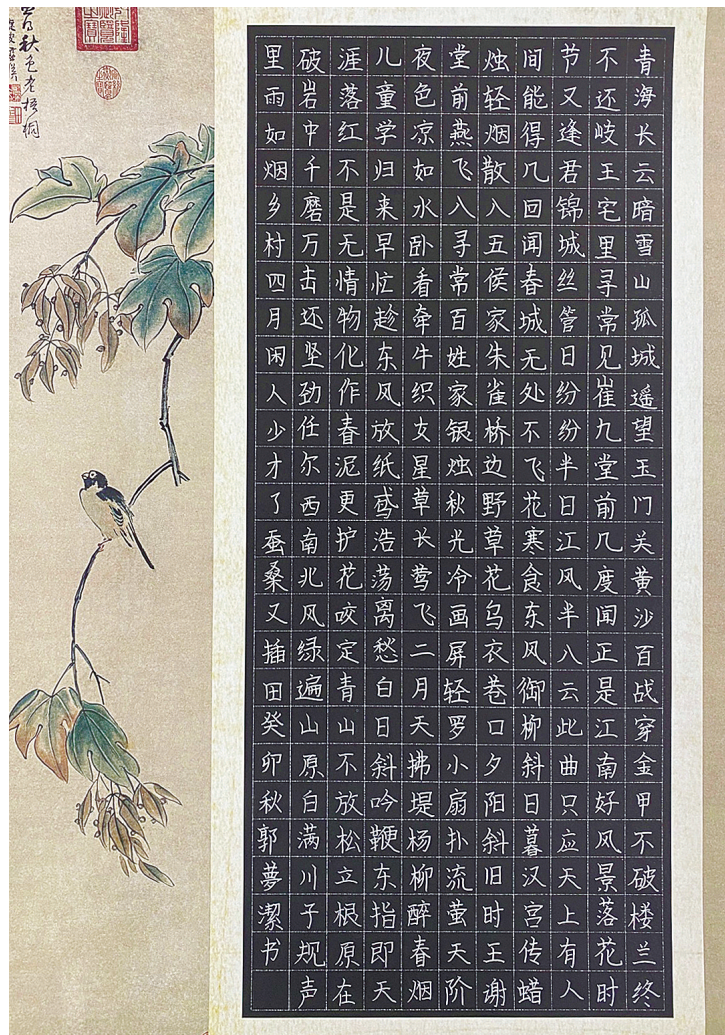 青海长云暗雪山孤城遥望玉门关黄沙百战穿金甲不破楼兰终
不还岐王宅里寻常见崔九堂前几度闻正是江南好风景落花时
节又逢君锦城丝管日纷纷半日江风半入云此曲只应天上有人
间能得几回闻春城无处不飞花寒食东风御柳斜日暮汉宫传蜡
烛轻烟散入五侯家朱雀桥边野草花乌衣巷口夕阳斜旧时王谢
堂前燕飞入寻常百姓家银烛秋光冷画屏轻罗小扇扑流萤天阶
夜色凉如水卧看牵牛织女星草长莺飞二月天拂堤杨柳醉春烟
儿童学归来早忙趁东风放纸鸢浩荡离愁白日斜吟鞭东指即天
涯落红不是无情物化作春泥更护花咬定青山不放松立根原在
破岩中千磨万击还坚劲任尔西南北风绿遍山原白满川子规声
里雨如烟乡村四月闲人少才了蚕桑又插田癸卯秋郭夢潔书
秋色老梧桐